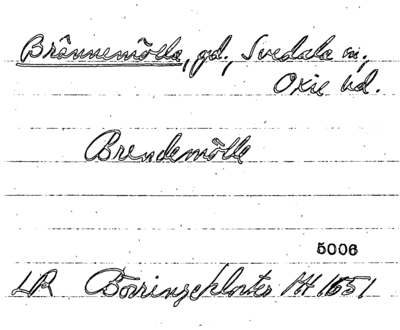 Brännemölla, gd., Svedala sn.,
Oxie hd.
Brendemölle
5006
LR Börringekloster AH 1651